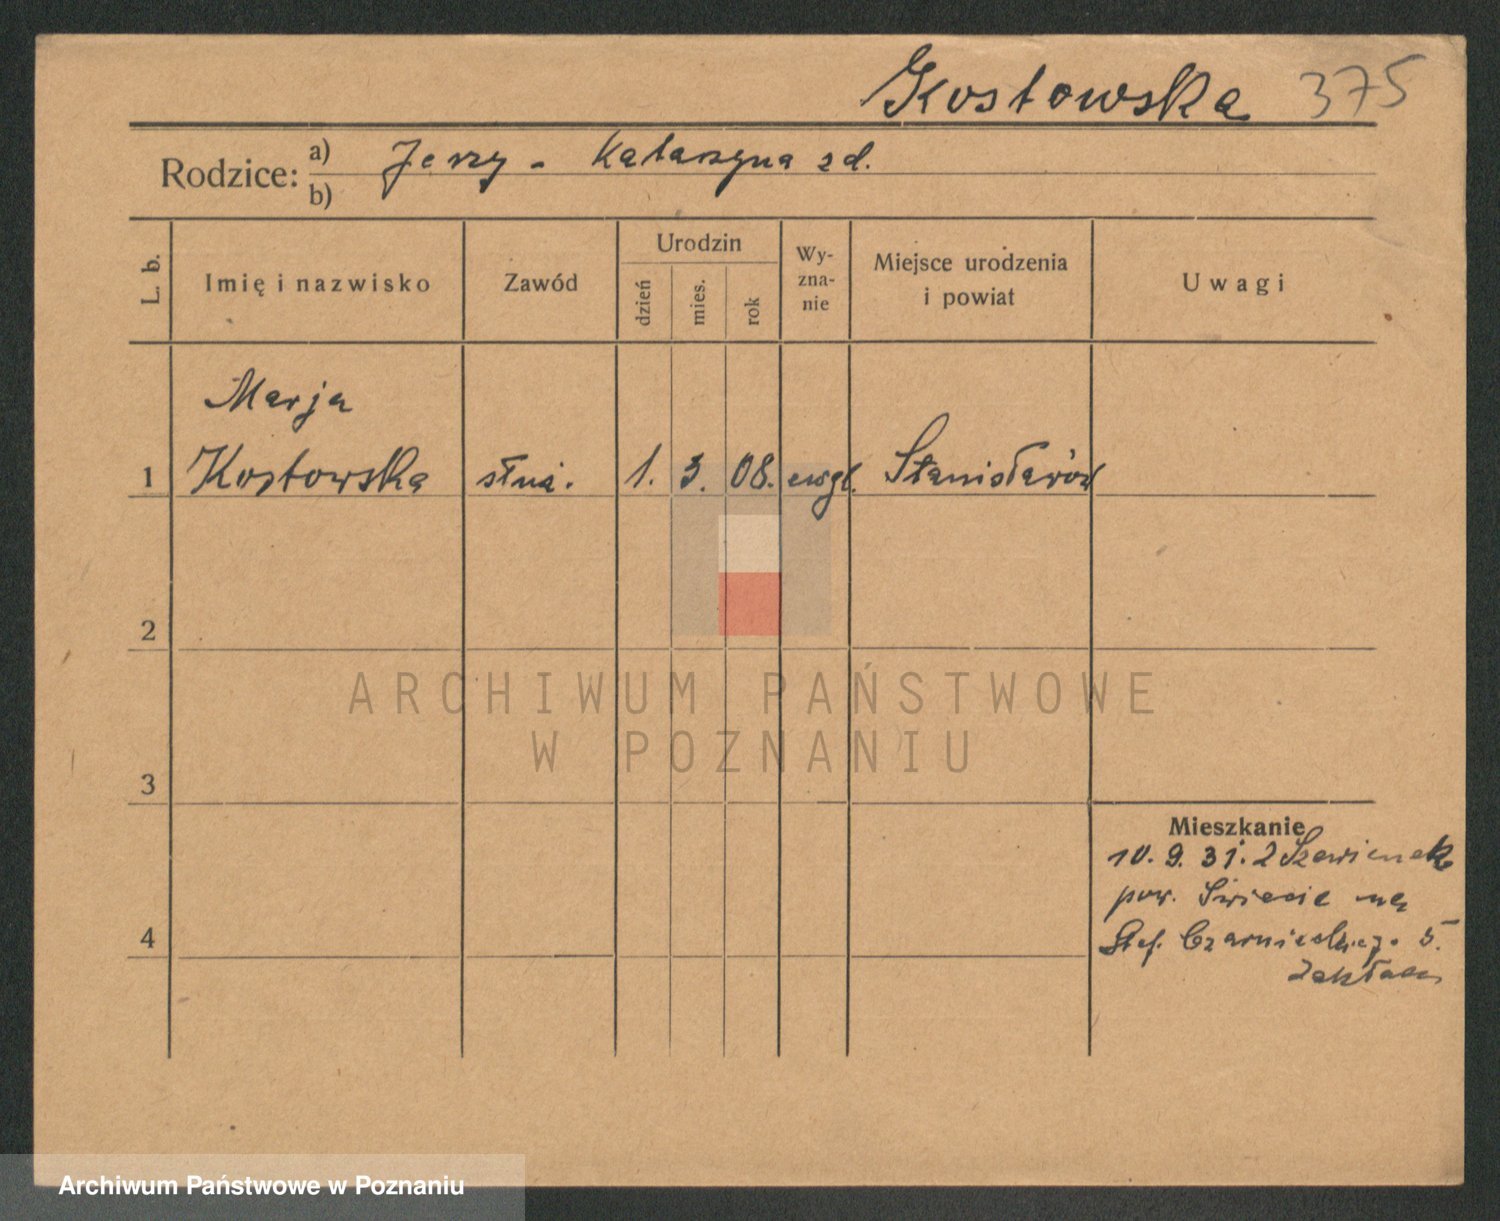 Kostowska 375
Rodzice: a) Jerzy - Katarzyna zd.
b)
L. b.
Imię i nazwisko
Zawód
Urodzin
dzień
mies.
rok
Wy-
zna-
nie
Miejsce urodzenia
i powiat
Uwagi
Marja
1 Kostowska służ. 1. 3. 08. ewgl. Stanisławów
2
ARCHIWUM PAŃSTWOWE
W POZNANIU
3
Mieszkanie
10. 9. 31. z
pow. Świecie na
Stef. Czarnieckiego 5.
4
Archiwum Państwowe w Poznaniu